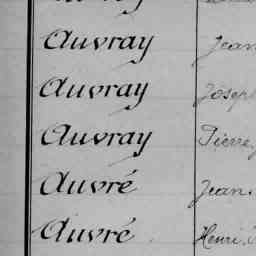 Auvray Jean
Auvray Joseph
Auvray Pierre
Auvré Jean
Auvré Henri